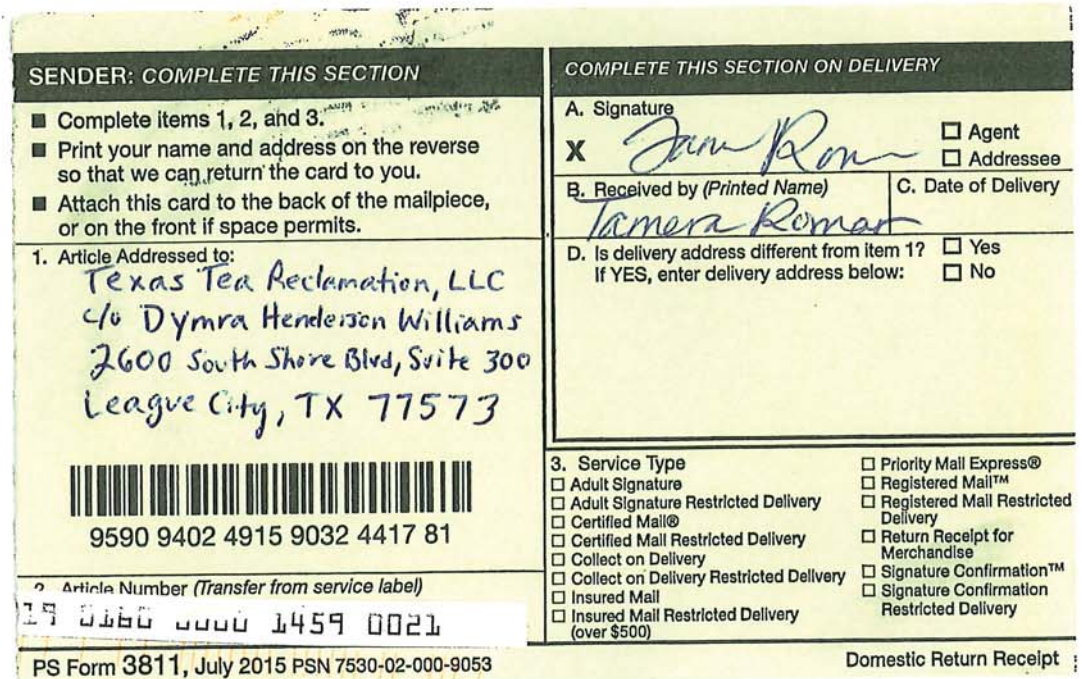 SENDER: COMPLETE THIS SECTION
■ Complete items 1, 2, and 3.
■ Print your name and address on the reverse
so that we can return the card to you.
■ Attach this card to the back of the mailpiece,
or on the front if space permits.
1. Article Addressed to:
Texas Tea Reclamation, LLC
c/o Dymra Henderson Williams
2600 South Shore Blvd, Suite 300
League City, TX 77573
9590 9402 4915 9032 4417 81
2. Article Number (Transfer from service label)
19 0160 0000 1459 0021
PS Form 3811, July 2015 PSN 7530-02-000-9053
COMPLETE THIS SECTION ON DELIVERY
A. Signature
X
☐ Agent
☐ Addressee
B. Received by (Printed Name)
Tamera Roman
C. Date of Delivery
D. Is delivery address different from item 1? ☐ Yes
If YES, enter delivery address below: ☐ No
3. Service Type
☐ Adult Signature
☐ Adult Signature Restricted Delivery
☐ Certified Mail®
☐ Certified Mail Restricted Delivery
☐ Collect on Delivery
☐ Collect on Delivery Restricted Delivery
☐ Insured Mail
☐ Insured Mail Restricted Delivery
(over $500)
☐ Priority Mail Express®
☐ Registered Mail™
☐ Registered Mail Restricted
Delivery
☐ Return Receipt for
Merchandise
☐ Signature Confirmation™
☐ Signature Confirmation
Restricted Delivery
Domestic Return Receipt